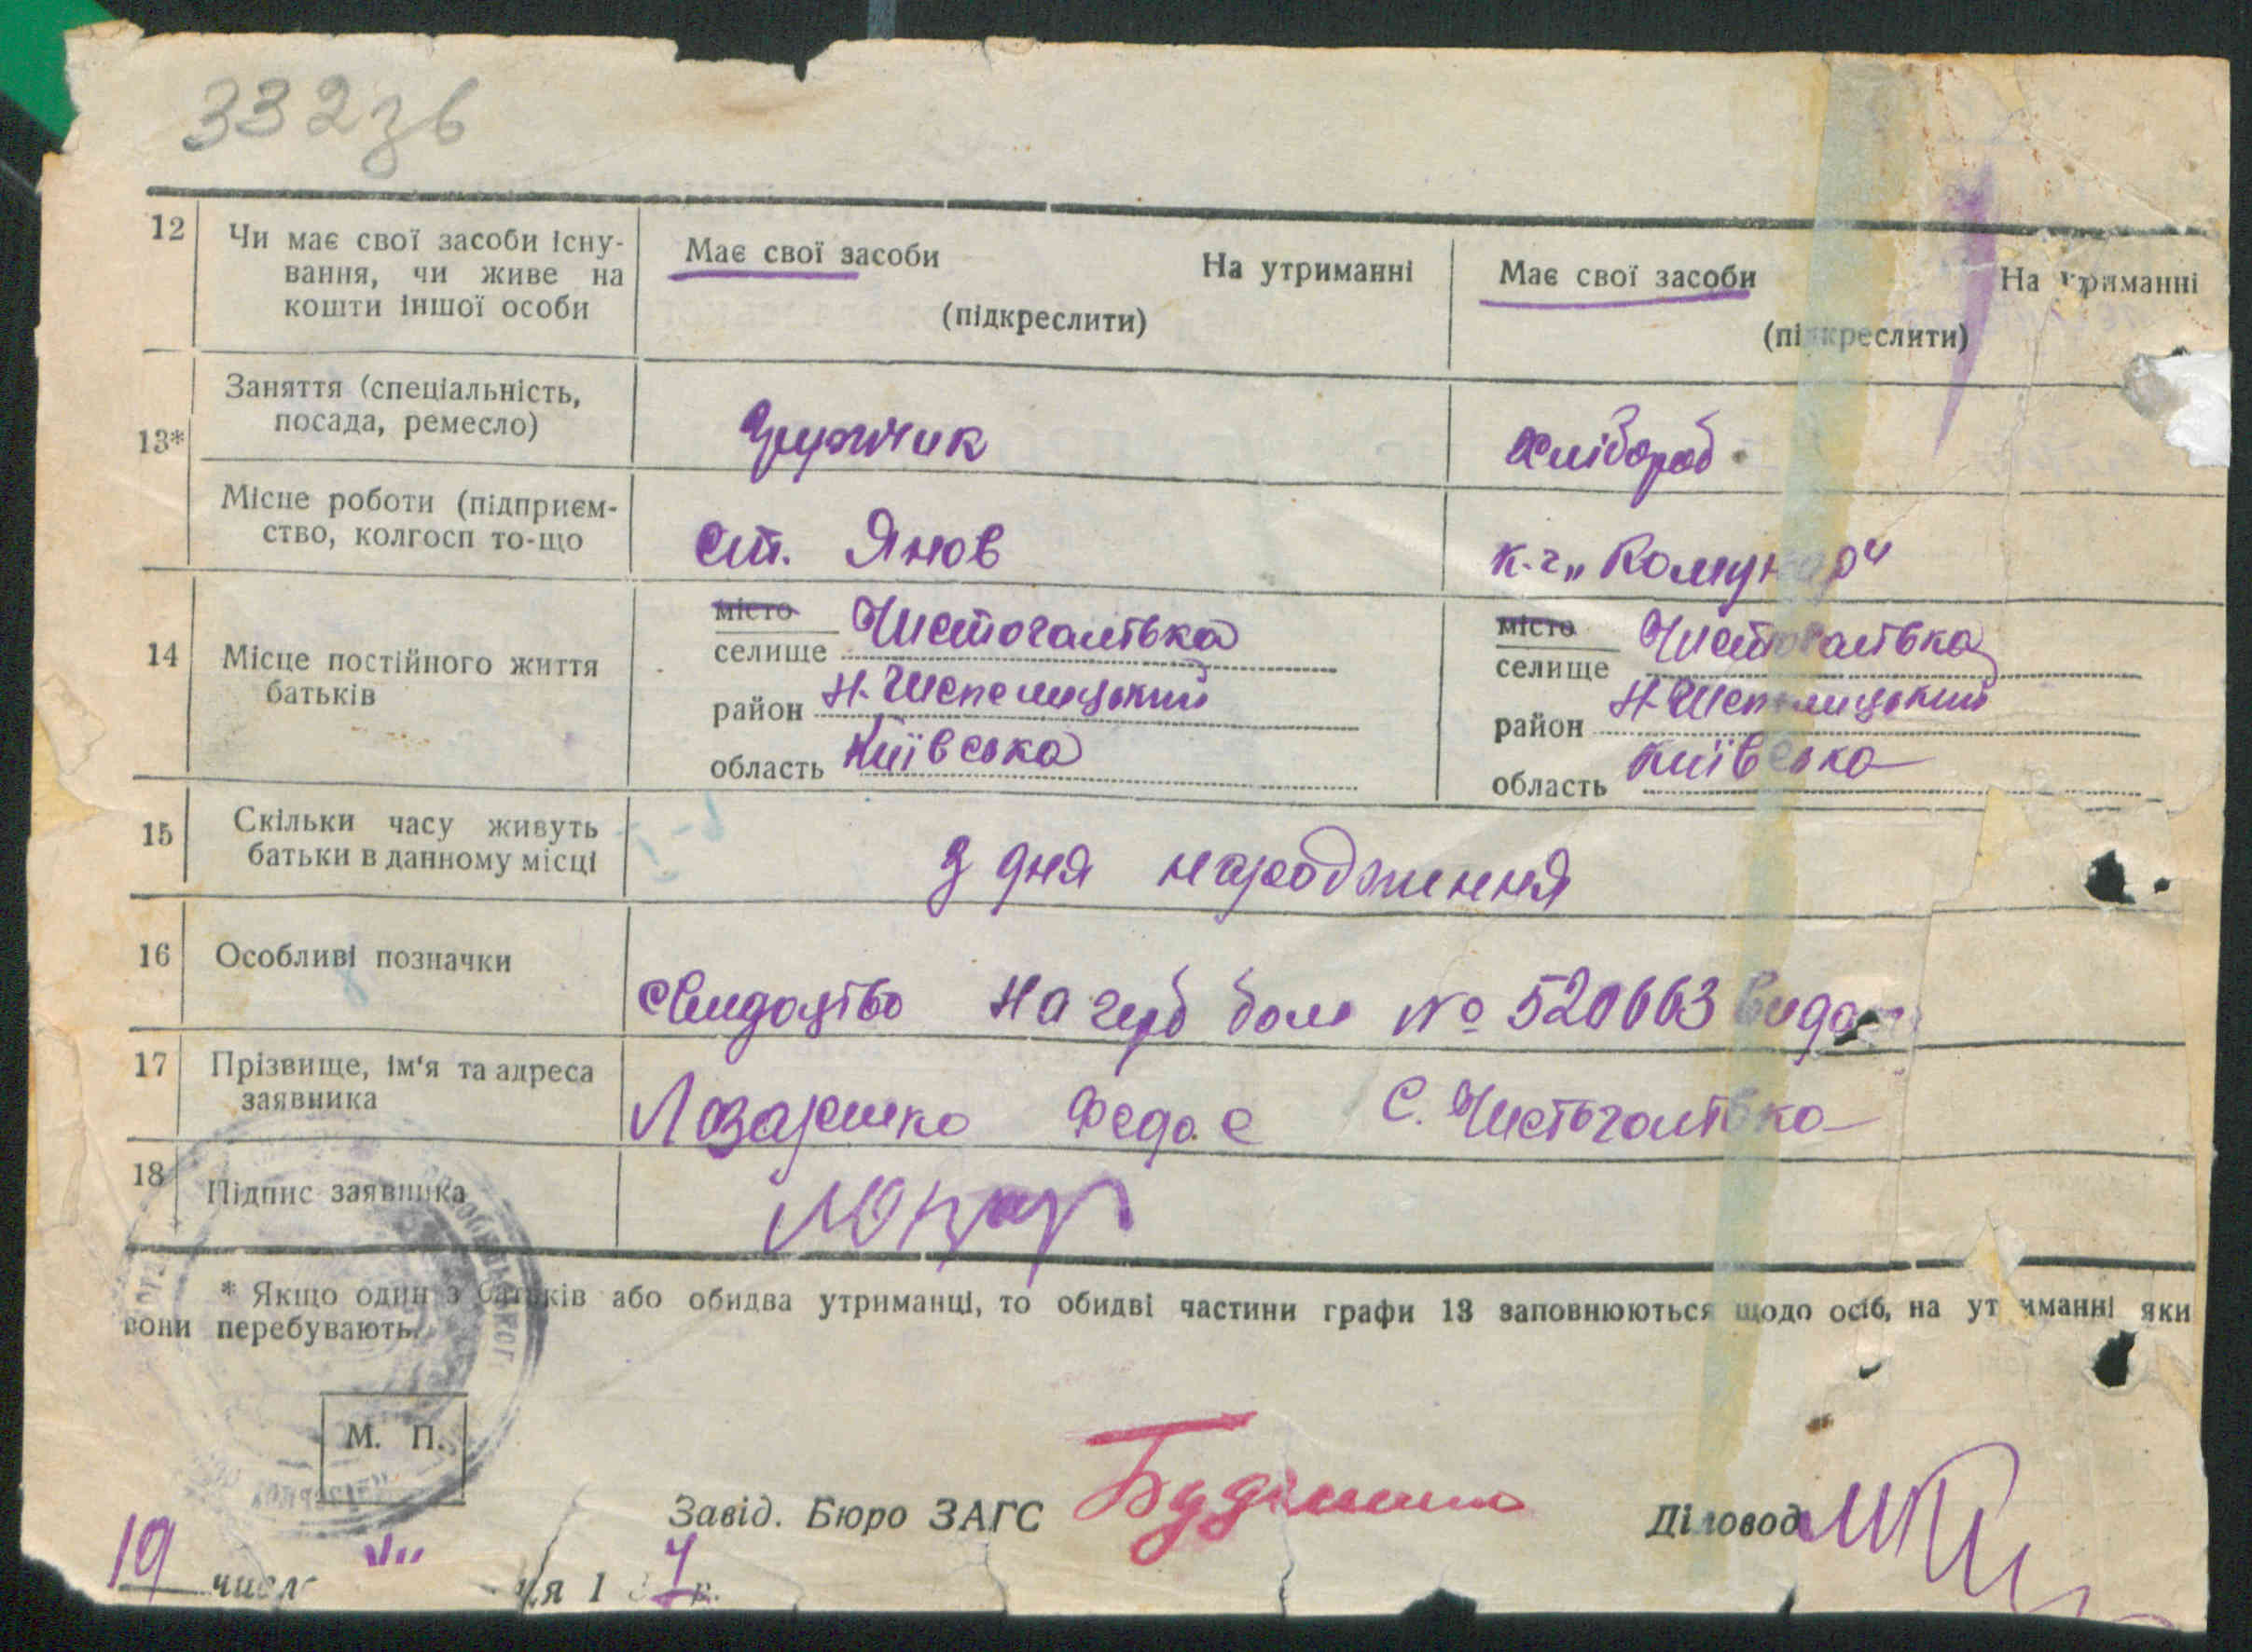 332зв
12 Чи має свої засоби існу-
вання, чи живе на
кошти іншої особи
Має свої засоби На утриманні
(підкреслити)
Має свої засоби На утриманні
(підкреслити)
13*
Заняття (спеціальність,
посада, ремесло)
Грузчик
Хлібороб
Місце роботи (підприєм-
ство, колгосп то-що
ст. Янов
к-г „Комунар"
14 Місце постійного життя
батьків
місто
селище Чистогалівка
район Н-Шепелицький
область Київська
місто
селище Чистогалівка
район Н-Шепелицький
область Київська
15 Скільки часу живуть
батьки в данному місці
З дня народження
16 Особливі позначки
Свидоцтво На герб бом № 520663
17 Прізвище, ім'я та адреса
заявника
Лазаренко С. Чистогалівка
18 Підпис заявника
* Якщо один з батьків або обидва утриманці, то обидві частини графи 13 заповнюються щодо осіб, на утриманні яки
вони перебувають.
М. П.
Завід. Бюро ЗАГС
Діловод
19 числ